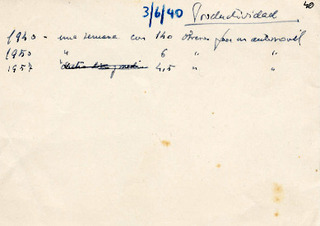 3/6/40 Productividad 40
1940 - una semana con 140 obreros para un automovil
1950 " 6 " "
1957 4,5 " "